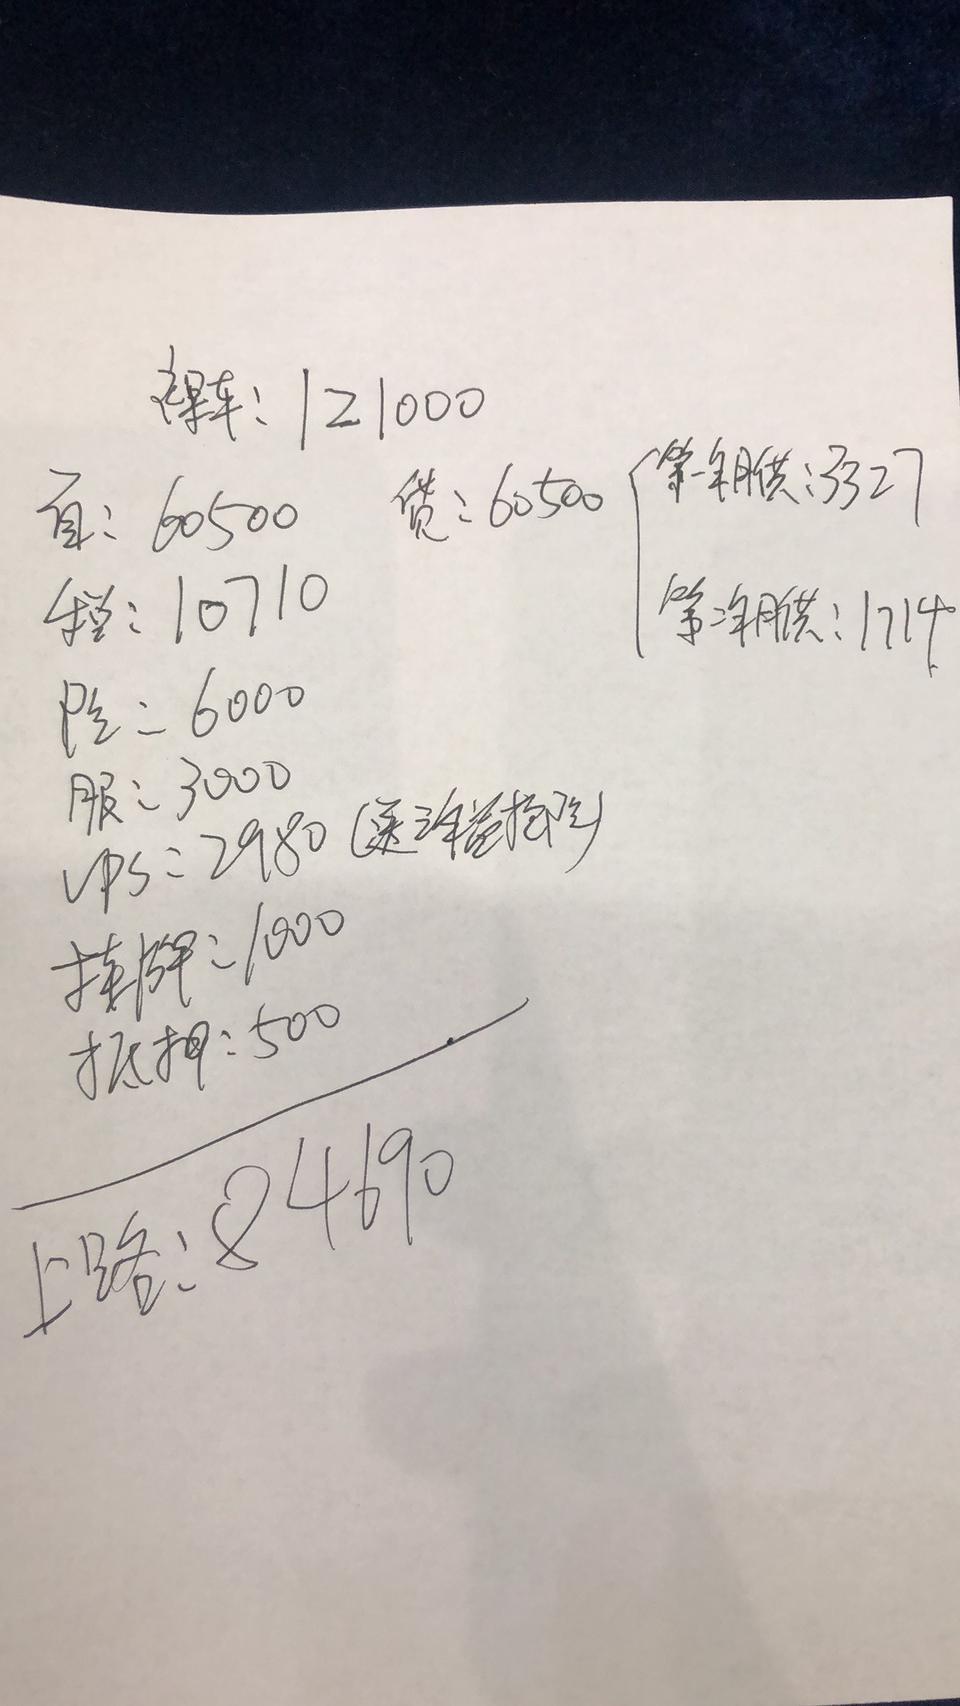 裸车：121000
首：60500 贷：60500 第一年月供：3327
第二年月供：1714
税：10710
险：6000
服：3000
VPS：2980（送三年盗抢险）
挂牌：1000
抵押：500
上路：84690